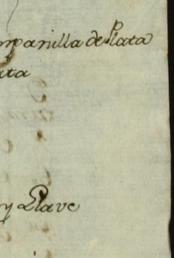 mpanilla de Plata
ata
y Llave